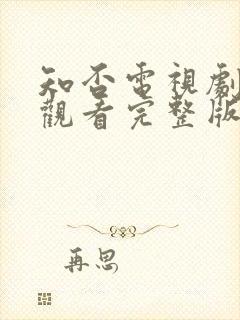 知否電視劇
觀看完整版
再思